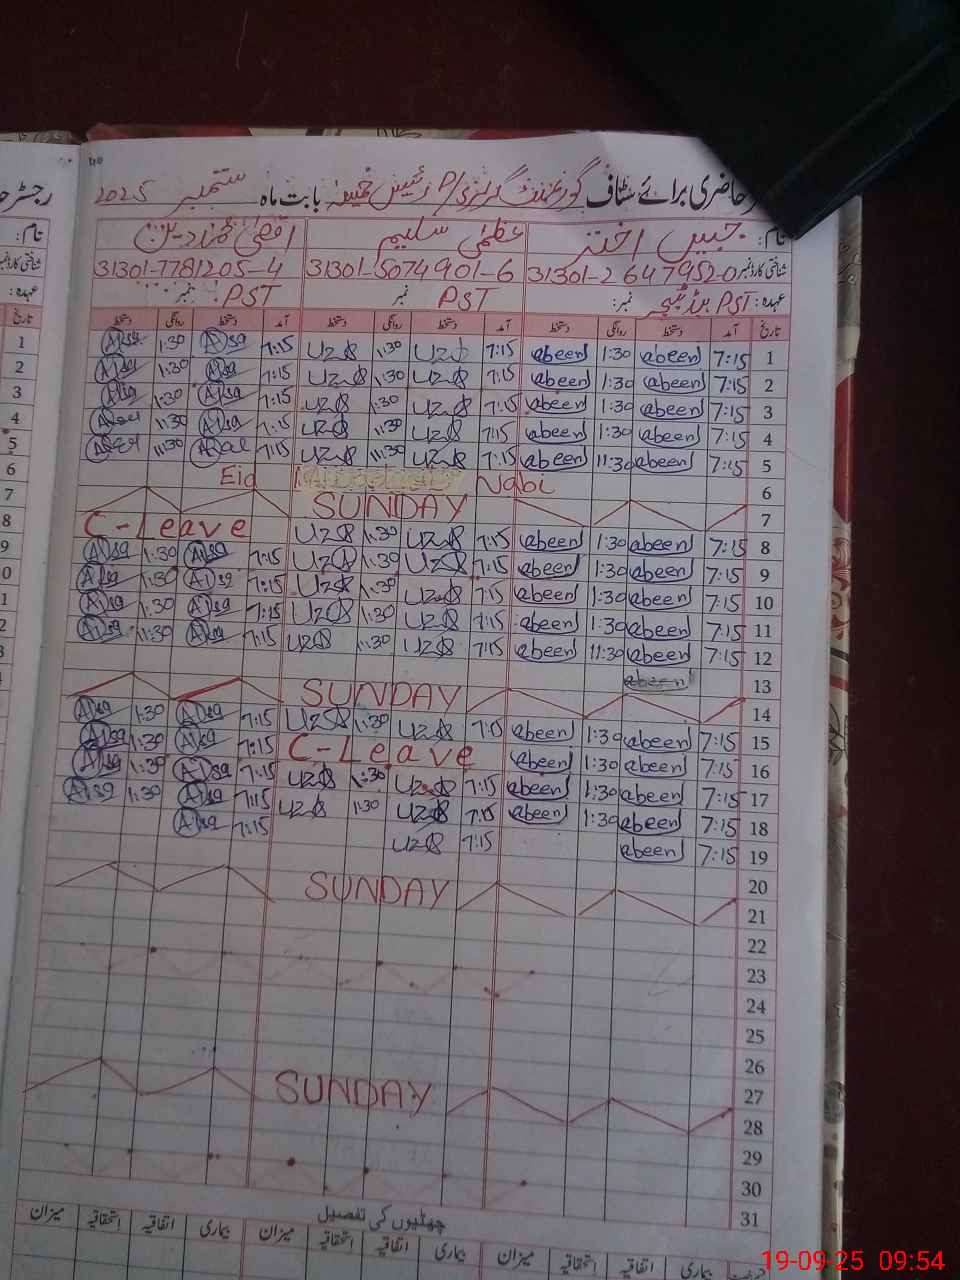 رجسٹر حاضری برائے سٹاف گورنمنٹ گرلز P/ رئیس بابت ماہ ستمبر 2025
نام: جبیں اختر عظمیٰ سلیم اقصیٰ
شناختی کارڈ نمبر 31301-2647952-0 31301-5074901-6 31301-7781205-4
عہدہ: PST ہیڈ ٹیچر نمبر: PST نمبر PST نمبر
تاریخ آمد دستخط روانگی دستخط آمد دستخط روانگی دستخط آمد دستخط روانگی دستخط
1 7:15 abeen 1:30 abeen 7:15 Uzo 1:30 Uzo 7:15 Aqsa 1:30 Aqsa
2 7:15 abeen 1:30 abeen 7:15 Uzo 1:30 Uzo 7:15 Aqsa 1:30 Aqsa
3 7:15 abeen 1:30 abeen 7:15 Uzo 1:30 Uzo 7:15 Aqsa 1:30 Aqsa
4 7:15 abeen 1:30 abeen 7:15 Uzo 1:30 Uzo 7:15 Aqsa 11:30
5 7:15 abeen 11:30 abeen 7:15 Uzo 11:30 Uzo 7:15 11:30
6 Eid Nabi
7 SUNDAY
8 7:15 abeen 1:30 abeen 7:15 Uzo 1:30 Uzo C-Leave
9 7:15 abeen 1:30 abeen 7:15 Uzo 1:30 Uzo 7:15 Aqsa 1:30 Aqsa
10 7:15 abeen 1:30 abeen 7:15 Uzo 1:30 Uzo 7:15 Aqsa 1:30 Aqsa
11 7:15 abeen 1:30 abeen 7:15 Uzo 1:30 Uzo 7:15 Aqsa 1:30 Aqsa
12 7:15 abeen 11:30 abeen 7:15 Uzo 11:30 Uzo 7:15 Aqsa 11:30 Aqsa
13 abeen
14 SUNDAY
15 7:15 abeen 1:30 abeen 7:15 Uzo 1:30 Uzo 7:15 Aqsa 1:30 Aqsa
16 7:15 abeen 1:30 abeen C-Leave 7:15 Aqsa 1:30 Aqsa
17 7:15 abeen 1:30 abeen 7:15 Uzo 1:30 Uzo 7:15 Aqsa 1:30 Aqsa
18 7:15 abeen 1:30 abeen 7:15 Uzo 1:30 Uzo 7:15 Aqsa 1:30 Aqsa
19 7:15 abeen 7:15 Uzo 7:15 Aqsa
20
21 SUNDAY
22
23
24
25
26
27
28 SUNDAY
29
30
31
چھٹیوں کی تفصیل
اتفاقیہ استحقاقیہ میزان بیماری اتفاقیہ استحقاقیہ میزان بیماری اتفاقیہ استحقاقیہ میزان
19-09-25 09:54